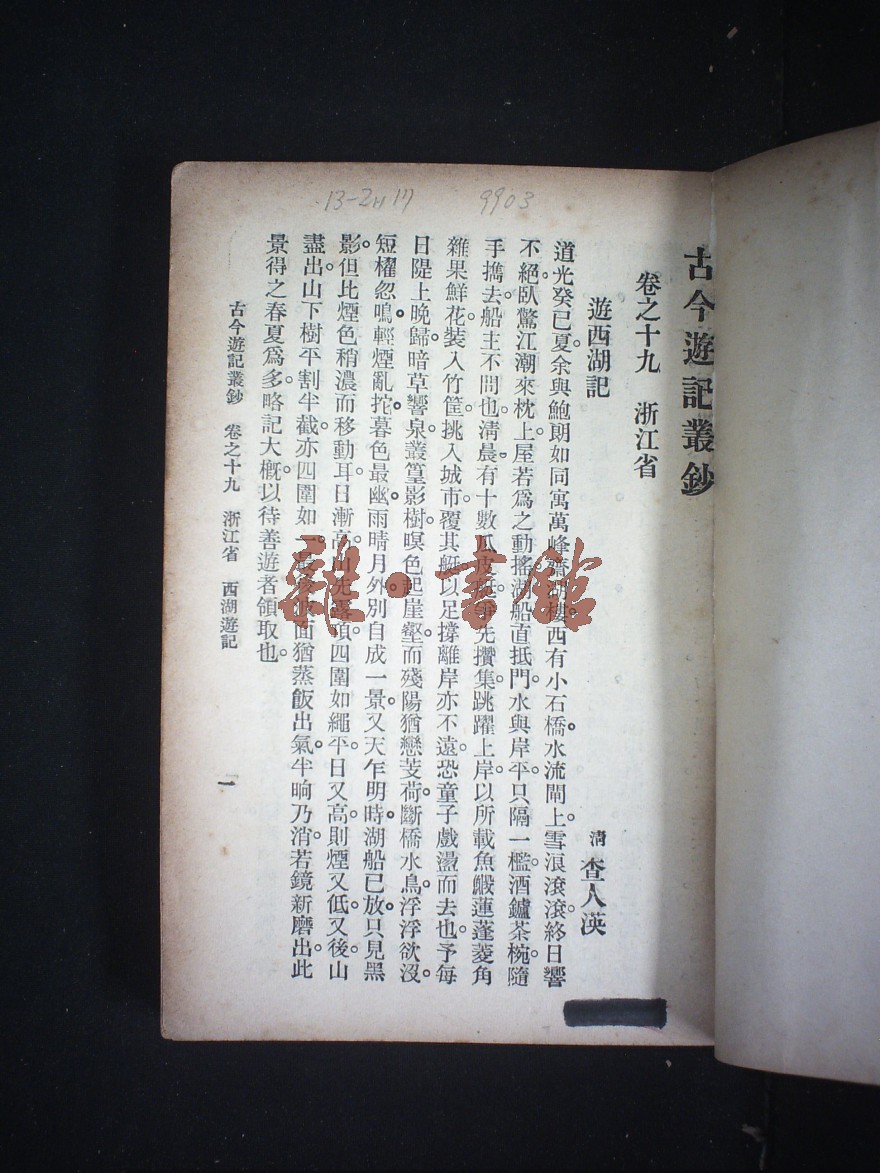 13-2H 17 9903
古今遊記叢鈔
卷之十九 浙江省
遊西湖記
清 查人渶
道光癸巳夏。余與鮑朗如同寓萬峰齊 樓。西有小石橋。水流閘上。雪浪滾滾。終日響
不絕。臥驚江潮來枕上。屋若爲之動搖。湖船直抵門。水與岸平。只隔一檻。酒鑪茶椀。隨
手擕去。船主不問也。淸晨。有十數瓜皮艇。 先攢集。跳躍上岸。以所載魚鰕蓮蓬菱角
雜果鮮花。裝入竹筐。挑入城市。覆其艇。以足撐離岸。亦不遠。恐童子戲盪而去也。予每
日隄上晚歸。暗草響泉。叢篁影樹。暝色起崖壑。而殘陽猶戀芰荷。斷橋水鳥。浮浮欲沒。
短櫂忽鳴。輕煙亂拕。暮色最幽。雨晴月外。別自成一景。又天乍明時。湖船已放。只見黑
影。但比煙色稍濃而移動耳。日漸高。 先露頂。四圍如繩平。日又高。則煙又低。又後山
盡出。山下樹平割半截。亦四圍如一。 面猶蒸飯出氣。半晌乃消。若鏡新磨出。此
景得之春夏爲多。略記大槪。以待善遊者領取也。
古今遊記叢鈔 卷之十九 浙江省 西湖遊記
一
雜·書館